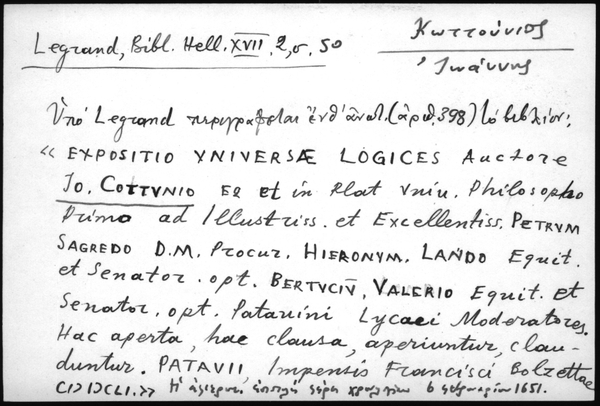 Legrand, Bibl. Hell. XVII, 2, σ. 50
Κωττούνιος
Ἰωάννης
Ὑπό Legrand περιγράφεται ἐνθ' ἀνωτ. (ἀριθ. 398) τό βιβλίον:
« EXPOSITIO VNIVERSÆ LOGICES Auctore
Io. COTTVNIO Eq. et in Plat Vniu. Philosopho
Primo ad Illustriss. et Excellentiss. PETRVM
SAGREDO D.M. Procur. HIERONYM. LANDO Equit.
et Senator. opt. BERTVCIV̄, VALERIO Equit. et
Senator. opt. Patauini Lycaei Moderatores.
Hac aperta, hac clausa, aperiuntur, clau-
duntur. PATAVII, Impensis Francisci Bolzettae
CIↃ IↃCLI.» Ἡ ἀφιέρωσις 6 1651.